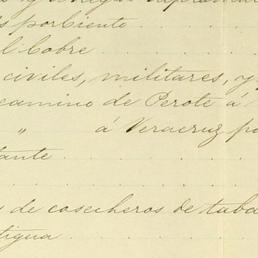 s porciento
l Cobre
civiles, militares, y
camino de Perote á
" á Veracruz po
tante
s de cosecheros de taba
tigua